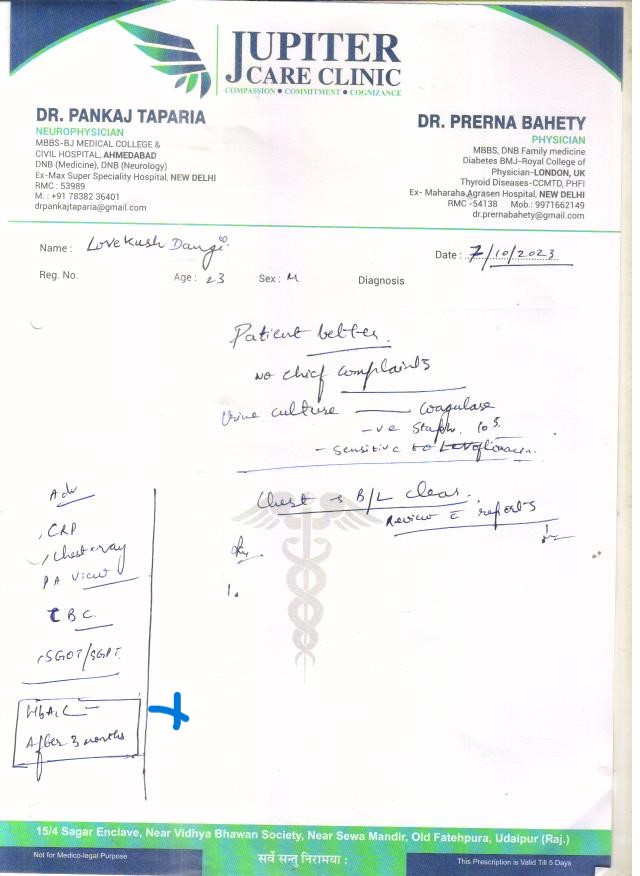 JUPITER
CARE CLINIC
COMPASSION • COMMITMENT • COGNIZANCE
DR. PANKAJ TAPARIA
NEUROPHYSICIAN
MBBS-BJ MEDICAL COLLEGE &
CIVIL HOSPITAL, AHMEDABAD
DNB (Medicine), DNB (Neurology)
Ex-Max Super Speciality Hospital, NEW DELHI
RMC : 53989
M. : +91 78382 36401
drpankajtaparia@gmail.com
DR. PRERNA BAHETY
PHYSICIAN
MBBS, DNB Family medicine
Diabetes BMJ-Royal College of
Physician-LONDON, UK
Thyroid Diseases-CCMTD, PHFI
Ex- Maharaha Agrasen Hospital, NEW DELHI
RMC -54138 Mob.: 9971662149
dr.prernabahety@gmail.com
Name : Lovekush Dangi
Date : 7/10/2023
Reg. No. Age : 23 Sex : M Diagnosis
Patient better.
No chief complaints
Urine culture — Coagulase
-ve Staph. 10^5.
- Sensitive to
Chest → B/L clear.
Review c̄ reports
Adv
CRP
Chest x ray
PA view
CBC
SGOT/SGPT
HbA1C -
After 3 months
1.
15/4 Sagar Enclave, Near Vidhya Bhawan Society, Near Sewa Mandir, Old Fatehpura, Udaipur (Raj.)
Not for Medico-legal Purpose
सर्वे सन्तु निरामया :
This Prescription is Valid Till 5 Days